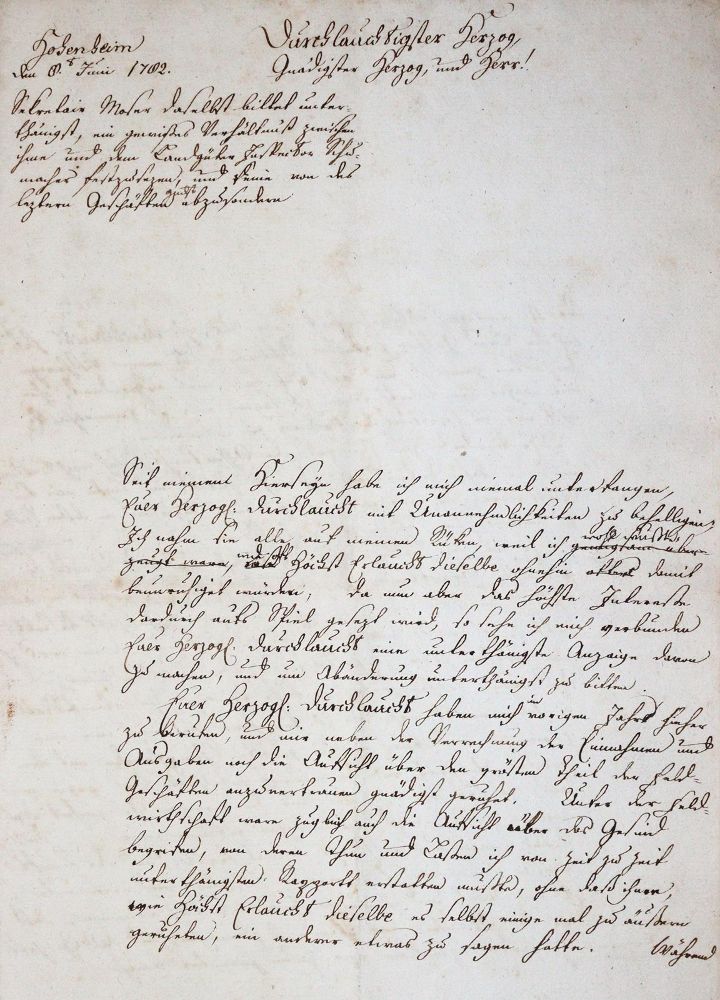 Hohenheim
den 8.t Juni 1782.
Durchlauchtigster Herzog,
Gnädigster Herzog, und Herr!
Sekretair Moser daselbst bittet unter-
thänigst, ein gewisses Verhältnuß zwischen
ihme und dem Landgüter Inspector Schu-
macher festzusezen, und keine von des
leztern Geschäften abzusondern
Seit meinem Hierseyn habe ich mich niemal unterfangen,
Euer Herzogl: Durchlaucht mit Unannehmlichkeiten zu behelligen,
Ich nahm sie alle auf meinen Rüken, weil ich genugsam über-
wohl wußte,
zeugt ware, Höchst Erlaucht dieselbe ohnehin öfters damit
wie oft
beunruhiget würden; da nun aber das höchste Interesse
dardurch aufs Spiel gesezt wird, so sehe ich mich verbunden
Euer Herzogl: Durchlaucht eine unterthänigste Anzeige davon
zu machen, und um Abänderung unterthänigst zu bitten.
Euer Herzogl: Durchlaucht haben mich im vorigen Jahr hieher
zu berufen, und mir neben der Verrechnung der Einnahmen und
Ausgaben noch die Aufsicht über den grösten Theil der Feld-
Geschäften anzuvertrauen gnädigst geruhet. Unter der Feld-
wirthschaft ware zugleich auch die Aufsicht über das Gesind
begriffen, von deren Thun und Lassen ich von Zeit zu Zeit
unterthänigsten Rapport erstatten mußte, ohne daß ihnen,
wie Höchst Erlaucht dieselbe es selbst einige mal zu äussern
geruheten, ein anderer etwas zu sagen hatte. Während